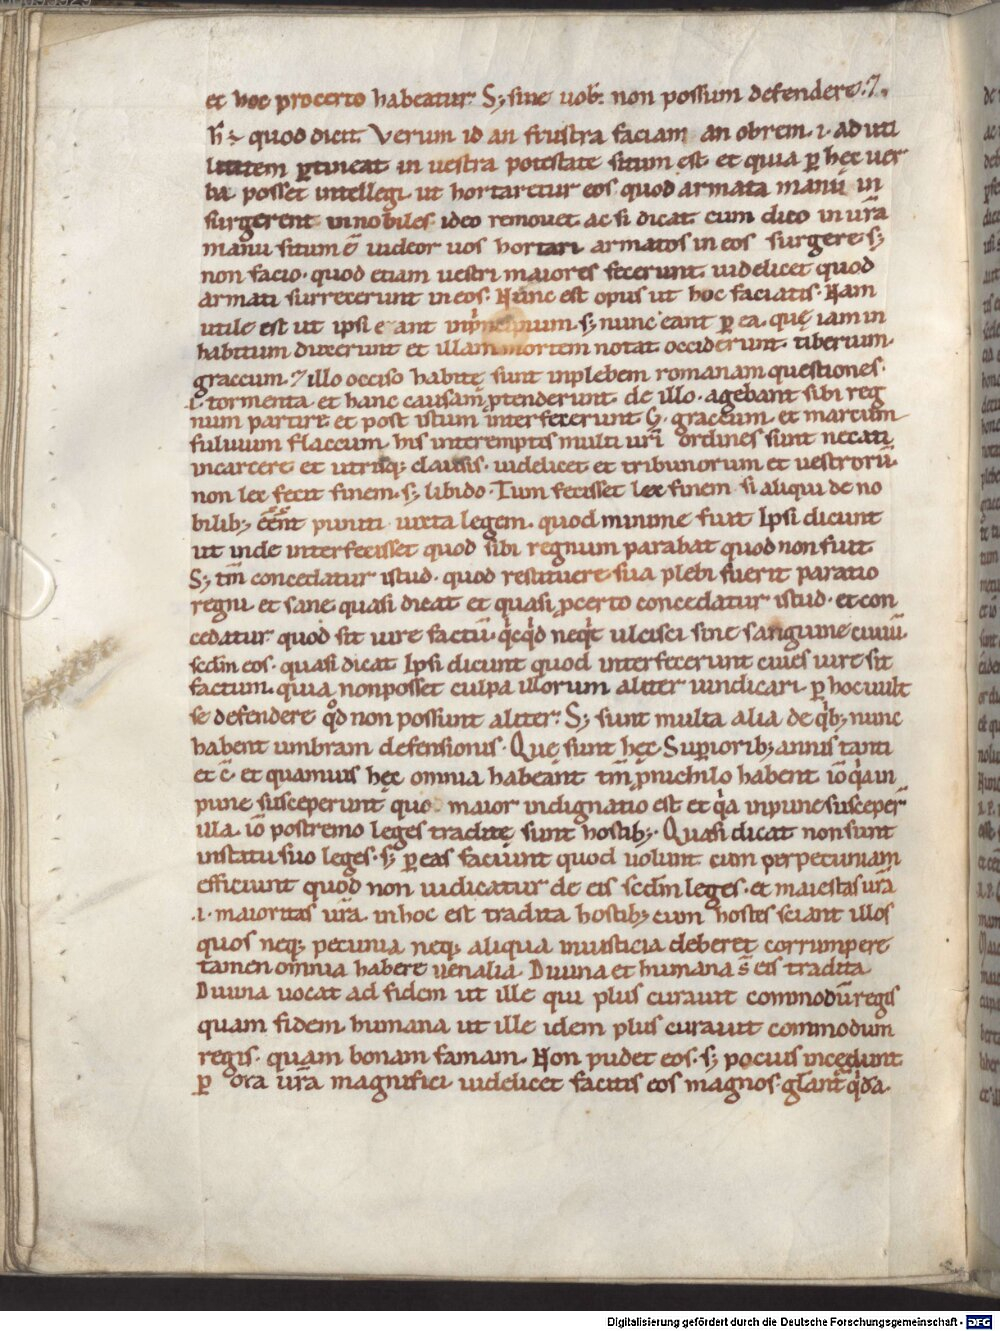 et hoc procerto habeatur. S; sine uob̄. non possum defendere. ⁊.
h̄ ÷ quod dicit Verum id an frustra faciam an obrem .i. ad uti
litatem ꝑtineat in uestra potestate situm est et quia ꝑ hęc uer
ba posset intellegi ut hortaretur eos quod armata manu in
surgerent in nobiles ideo remouet ac si dicat cum dico in ur̄a
manu situm ē uideor uos hortari armatos in eos surgere s;
non facio. quod etiam uestri maiores fecerunt uidelicet quod
armati surrexerunt in eos. Nunc est opus ut hoc faciatis. Nam
utile est ut ipsi erant inprincipium. s; nunc eant ꝑ ea. quę iam in
habitum duxerunt et illam mortem notat occiderunt tiberium
graccum. ⁊ illo occiso habitę sunt inplebem romanam questiones.
.i. tormenta et hanc causam p̄tenderunt de illo. agebant sibi reg
num partire et post istum interfexerunt G. graccum. et marcum
fuluium flaccum. his interemptis multi ur̄i ordines sunt necati
incarcere et utriusq; cladis. uidelicet et tribunorum et uestrorū.
non lex fecit finem. s; libido. Tum fecisset lex finem si aliqui de no
bilib; eēnt puniti iuxta legem. quod minime fuit Ipsi dicunt
ut inde interfecisset quod sibi regnum parabat quod non fuit
S; tm̄ concedatur istud. quod restituere sua plebi fuerit paratio
regni et sane quasi dicat et quasi ꝓcerto concedatur istud. et con
cedatur quod sit iure factū. qͥcqͥd neqͥt ulcisci sine sanguine ciuiū.
scdm̄ eos. quasi dicat Ipsi dicunt quod interfecerunt ciues iure sit
factum. quia nonposset culpa illorum aliter uindicari. ꝑ hoc uult
se defendere qͦd non possunt aliter. S; sunt multa alia de qͥb; nunc
habent umbram defensionis. Que sunt hęc. Superiorib; annis taciti
et c̄. et quamuis hęc omnia habeant tm̄ p̄nichilo habent iō qͥa in
pune susceperunt quo maior indignatio est et qͥa inpune susceper̄
illa. iō postremo leges traditę sunt hostib;. Quasi dicat non sunt
instatu suo leges. s; ꝑ eas faciunt quod uolunt cum perpecuniam
efficiunt quod non iudicatur de eis scdm̄ leges. et maiestas ur̄a
.i. maioritas ur̄a. in hoc est tradita hostib; cum hostes sciant illos
quos neq; pecunia neq; aliqua iniusticia deberet corrumpere
tamen omnia habere uenalia. Diuina et humana s̄ eis tradita
Diuina uocat ad fidem ut ille qui plus curauit commodū regis
quam fidem. humana ut ille idem plus curauit commodum
regis. quam bonam famam. Non pudet eos. s; pocius incędunt
ꝑ ora ur̄a magnifici uidelicet facitis eos magnos. gl̄ant qͥda.
Digitalisierung gefördert durch die Deutsche Forschungsgemeinschaft - DFG